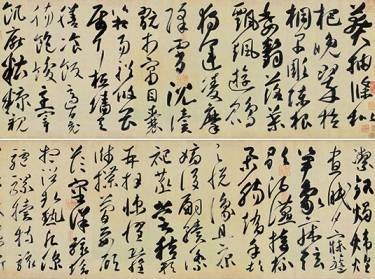 莽抽條枇
杷晚翠梧
桐早凋陳根
委翳落葉
飄颻遊鵾
獨運凌摩
絳霄耽讀
翫市寓目囊
箱易輶攸畏
屬耳垣牆具
膳飡飯適口充
腸飽飫烹宰
飢厭糟糠親
潔銀燭煒煌
晝眠夕寐藍
笋象床絃
歌酒讌接杯
舉觴矯手頓
足悅豫且康
嫡後嗣續祭
祀蒸嘗稽顙
再拜悚懼恐惶
牋牒簡要顧
答審詳骸垢
想浴執熱願涼
驢騾犢特駭